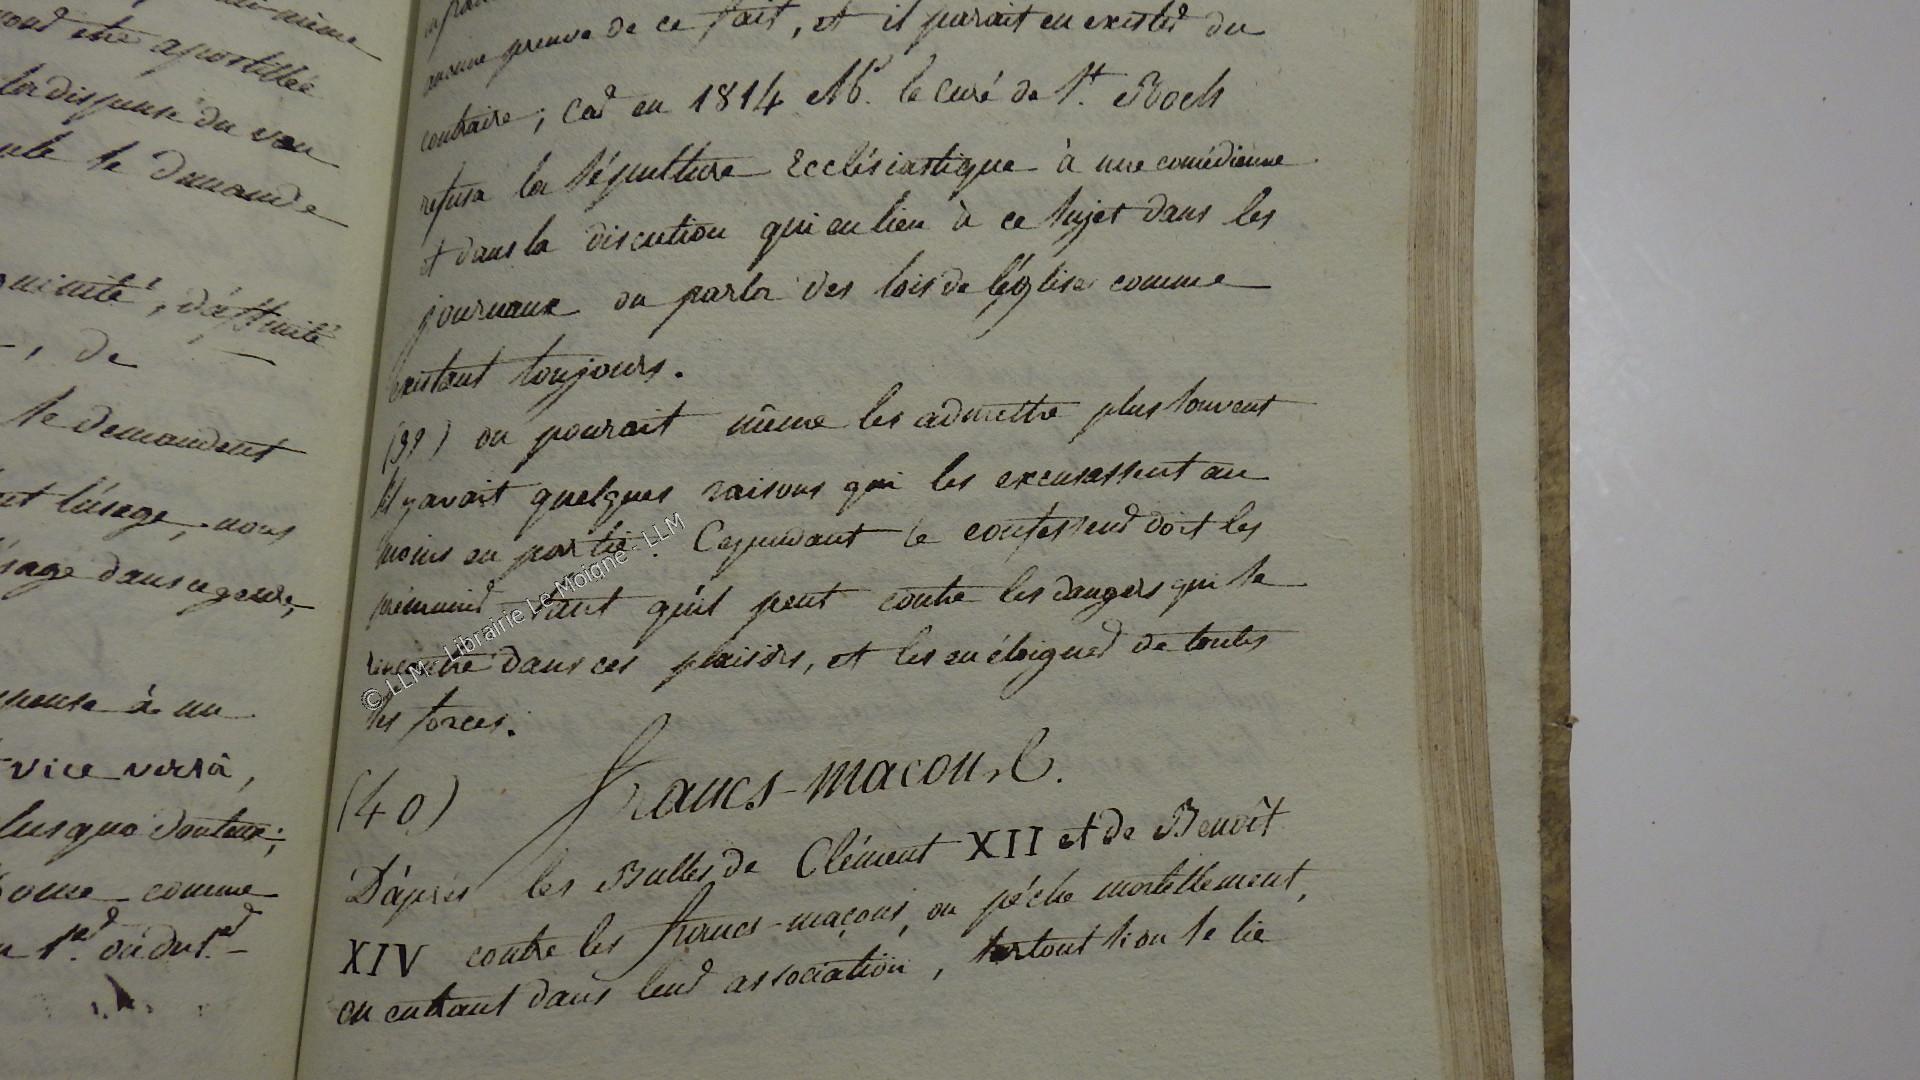 même
être apostillée
la dispense du vœu
le demande
d'affinité
, de
se demandent
l'usage, nous
usage dans ce genre,
à un
vice versâ,
plus que douteux;
comme
ou du
aucune preuve de ce fait, et il parait en exister du
contraire; car en 1814 Mr. le curé de St. Roch
refusa la sépulture Ecclésiastique à une comédienne
et dans la discution qui eu lieu à ce sujet dans les
journaux on parla des lois de l'église comme
existant toujours.
(39) on pourait même les admettre plus souvent
s'il y avait quelques raisons qui les excusassent au
moins en partie. Cependant le confesseur doit les
prémunir tant qu'il peut contre les dangers qui se
rencontre dans ces plaisirs, et les en éloigner de toutes
ses forces.
(40) francs-macons.
D'après les Bulles de Clément XII et de Benoît
XIV contre les francs-maçons, on pêche mortellement,
en entrant dans leur association, surtout si on se lie
© LLM - Librairie Le Moigne - LLM